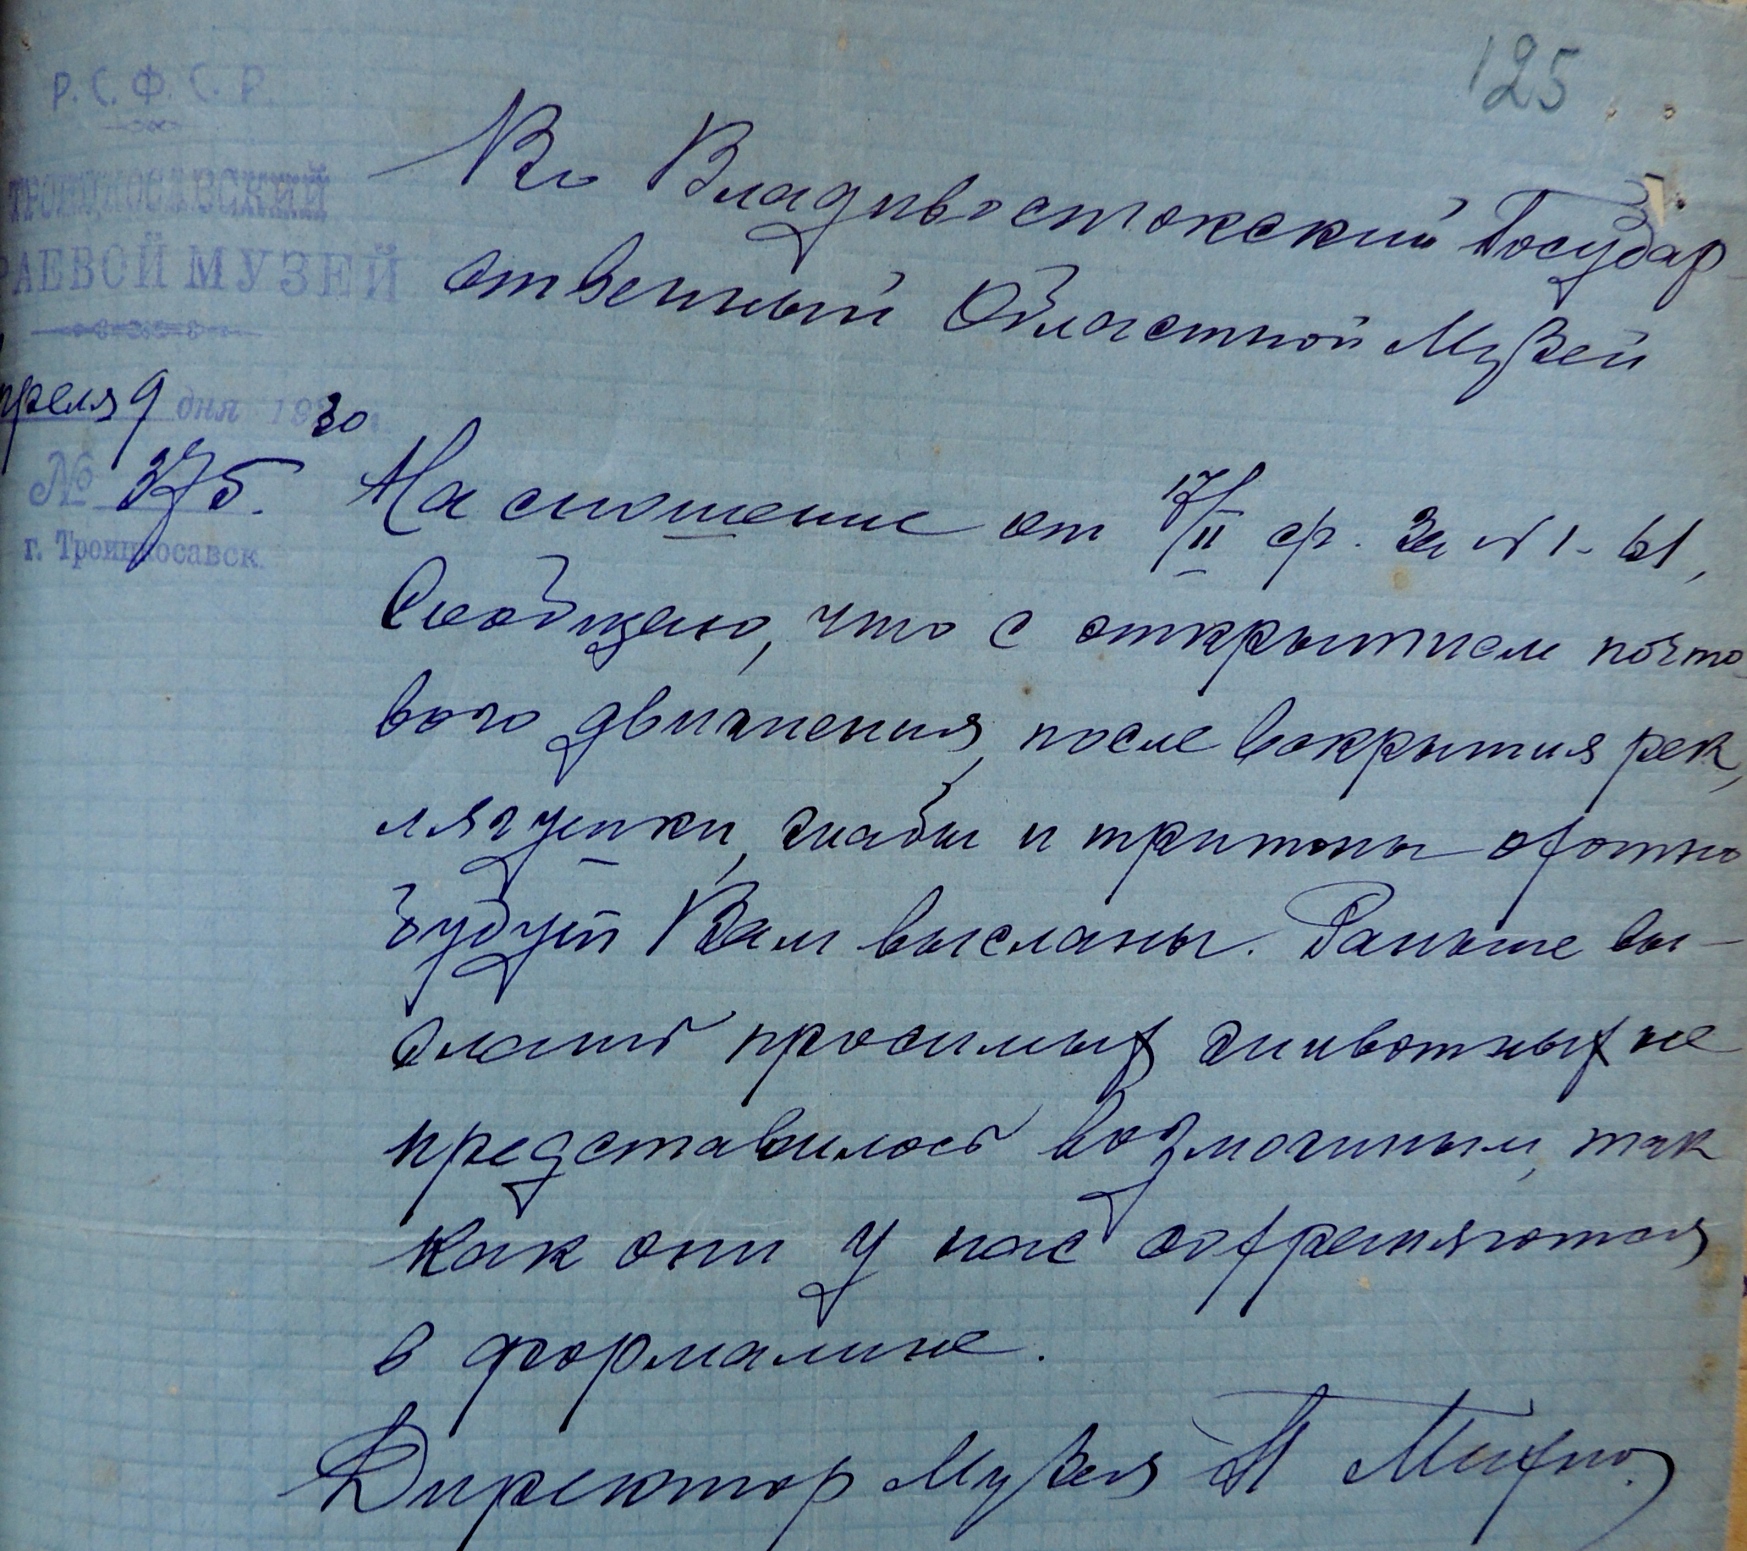 125
Р.С.Ф.С.Р.
ТРОИЦКОСАВСКИЙ
РАЕВОЙ МУЗЕЙ
преля 9 дня 1930
№ 375.
г. Троицкосавск.
Во Владивостокский Государ-
ственный Областной Музей
На сношение от 17/II с/г. за №1-61,
Сообщаю, что с открытием почто-
вого движения, после вскрытия рек,
лягушки, жабы и тритоны охотно
будут Вам высланы. Раньше вы-
слать просимых животных не
представилось возможным, так
как они у нас сохраняются
в формалине.
Директор Музея П